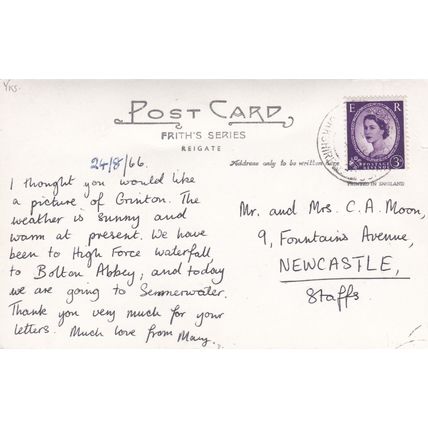 Yks.
POST CARD
FRITH'S SERIES
REIGATE
24/8/66.
Address only to be written here
E R
POSTAGE
REVENUE
3D
PRINTED IN ENGLAND
I thought you would like
a picture of Grinton. The
weather is sunny and
warm at present. We have
been to High Force waterfall,
to Bolton Abbey, and today
we are going to Semmerwater.
Thank you very much for your
letters. Much love from Mary.
Mr. and Mrs. C. A. Moon,
9, Fountains Avenue,
NEWCASTLE,
Staffs